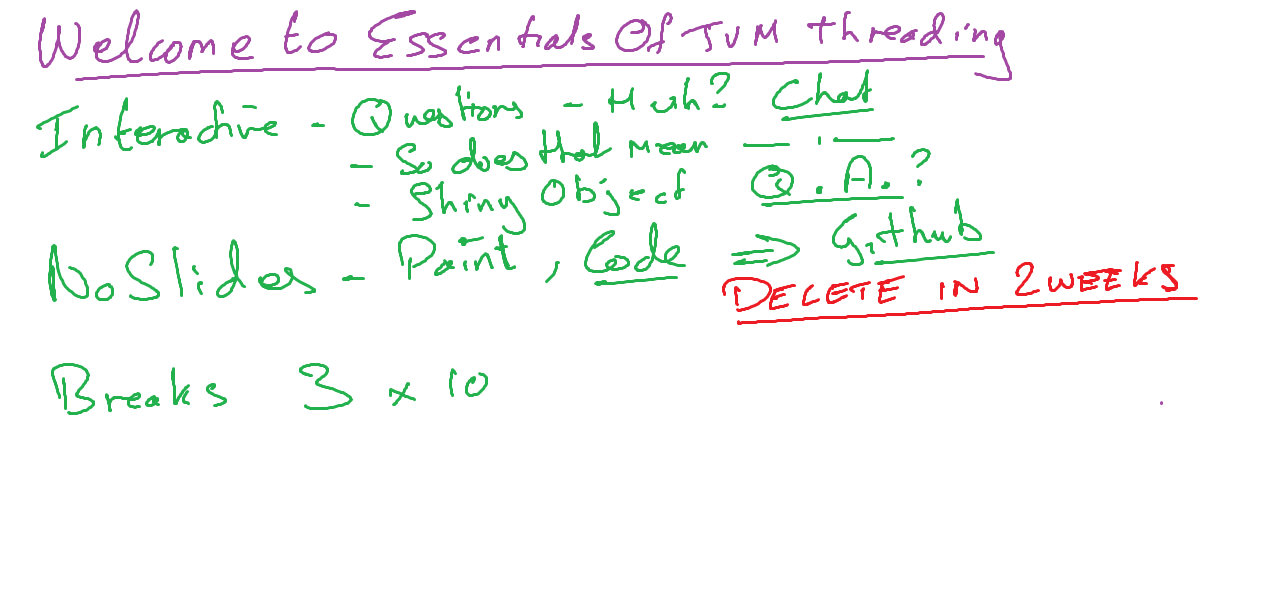 Welcome to Essentials Of JVM threading
Interactive - Questions - Huh? Chat
- So does that mean
- Shiny Object Q.A.?
No Slides - Paint, Code ⇒ Github
DELETE IN 2 WEEKS
Breaks 3 x 10